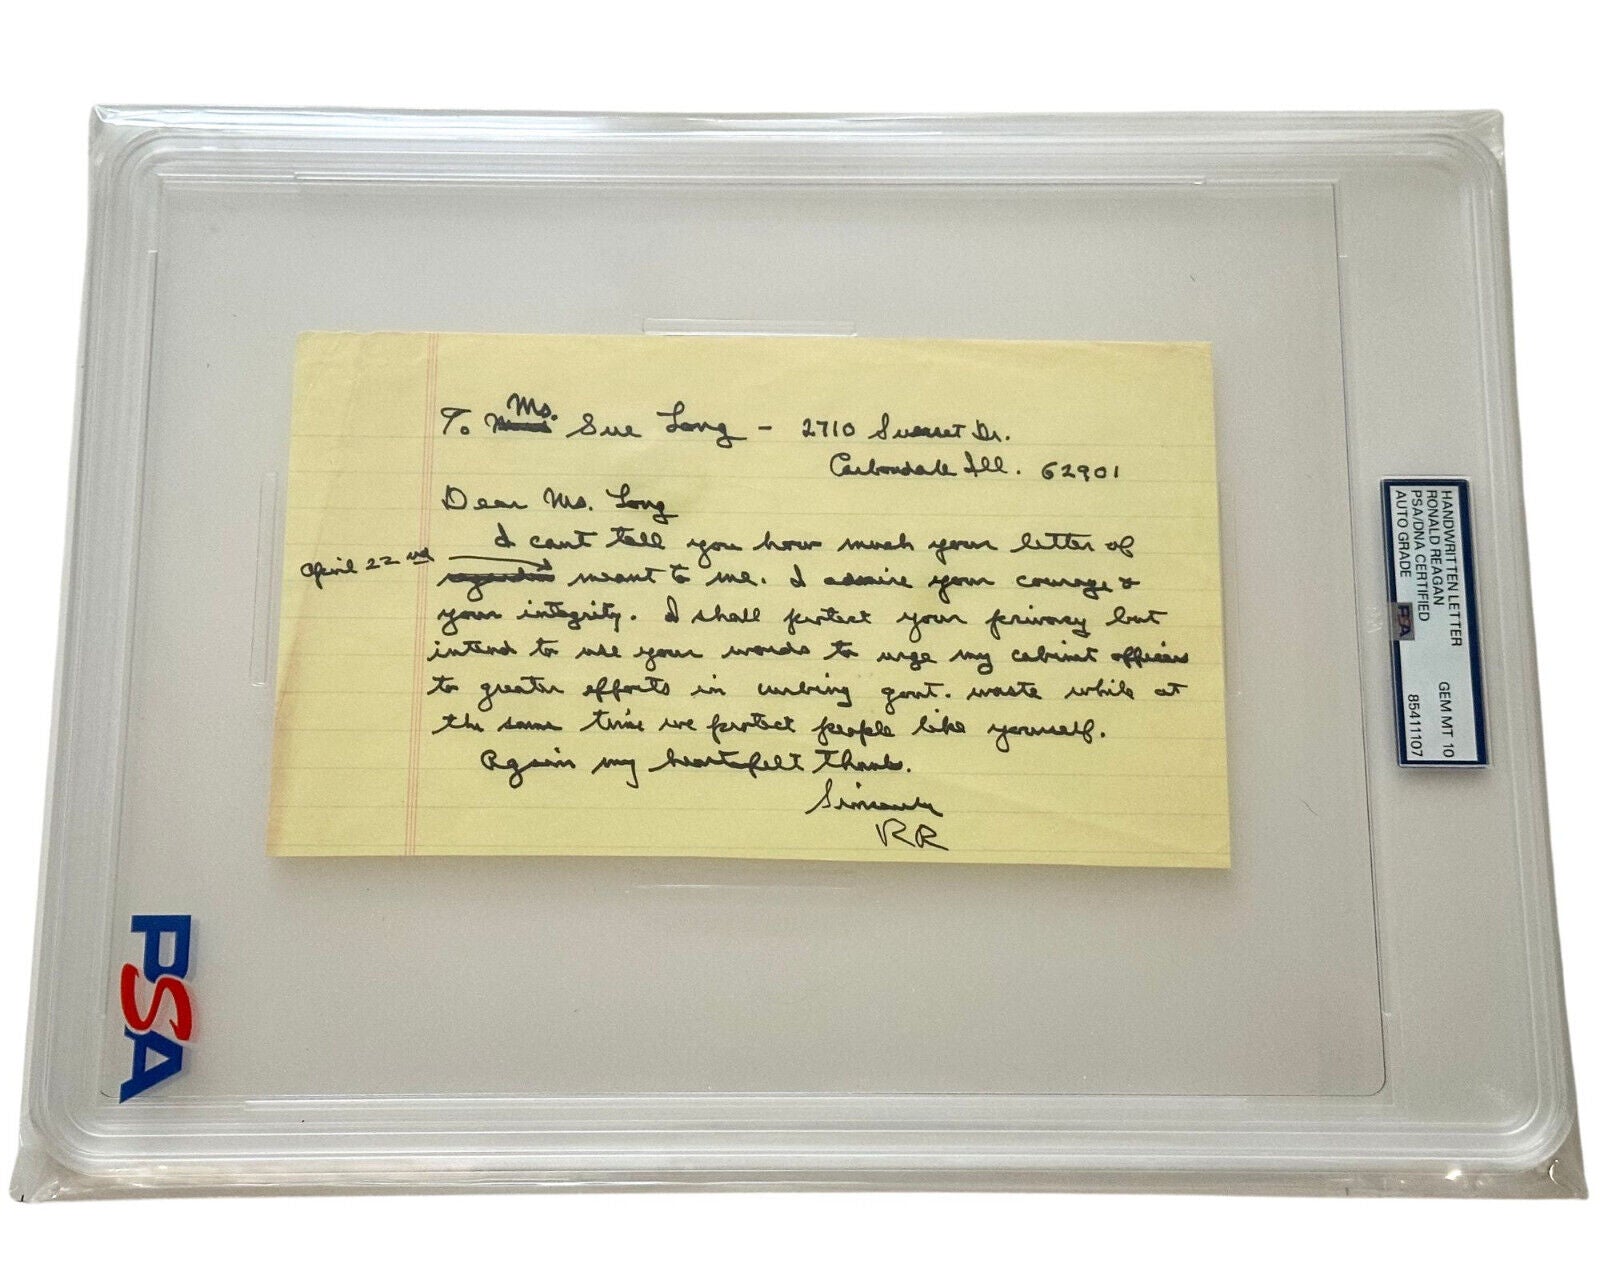 To Ms. Sue Long - 2710 Sunset Dr.
Carbondale Ill. 62901
Dear Ms. Long
I cant tell you how much your letter of
April 22nd regarding meant to me. I admire your courage &
your integrity. I shall protect your privacy but
intend to use your words to urge my cabinet officers
to greater efforts in curbing govt. waste while at
the same time we protect people like yourself.
Again my heartfelt thanks.
Sincerely
RR
HANDWRITTEN LETTER
RONALD REAGAN
PSA/DNA CERTIFIED
AUTO GRADE
GEM MT 10
85411107
PSA
PSA